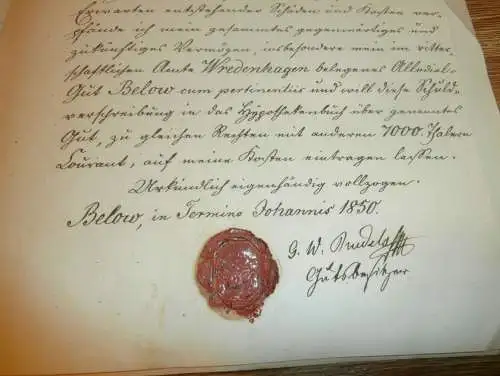 Erwarten entstehender Schäden und Kosten ver-
pfände ich mein gesammtes gegenwärtiges und
zukünftiges Vermögen, insbesondere mein im ritter-
schaftlichen Amte Wredenhagen belegenes Allodial-
Gut Below cum pertinentiis und will diese Schuld-
verschreibung in das Hypothekenbuch über genanntes
Gut, zu gleichen Rechten mit anderen 7000 Thalern
Courant, auf meine Kosten eintragen lassen.
Urkundlich eigenhändig vollzogen.
Below, in Termino Johannis 1850.
G. W.
Gutsbesitzer